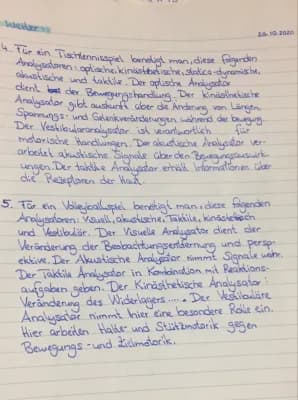 Weiter :)
20.10.2020
4. Für ein Tischtennisspiel benötigt man, diese folgenden
Analysatoren: optische, kinästhetische, statico-dynamische,
akustische und taktile. Der optische Analysator
dient der Bewegungshandlung. Der kinästhetische
Analysator gibt auskunft über die Änderung von Längen,
Spannungs- und Gelenkveränderungen während der bewegung.
Der Vestibularanalysator ist verantwortlich für
motorische Handlungen. Der akustische Analysator ver-
arbeitet akustische Signale über den Bewegungsauswirk-
ungen. Der taktile Analysator erhält Informationen über
die Rezeptoren der Haut.
5. Für ein Volleyballspiel benötigt man, diese folgenden
Analysatoren: Visuell, akustische, Taktile, kinästhetischen
und Vestibulär. Der Visuelle Analysator dient der
Veränderung der Beobachtungsentfernung und persp-
ektive. Der Akustische Analysator nimmt Signale wahr.
Der Taktile Analysator in Kombination mit Reaktions-
aufgaben geben. Der Kinästhetische Analysator:
Veränderung des Widerlagers..... Der Vestibuläre
Analysator nimmt hier eine besondere Rolle ein.
Hier arbeiten Halte- und Stützmotorik gegen
Bewegungs- und Zielmotorik.